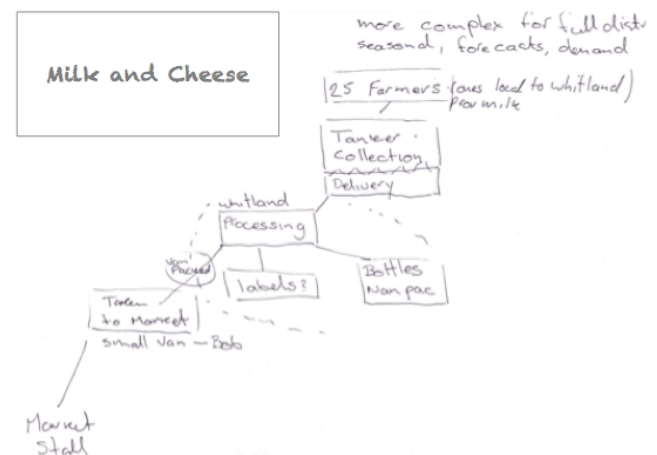 more complex for full distr
seasonal, forecasts, demand
Milk and Cheese
25 Farmers (ones local to whitland)
Prov milk
Tanker
collection
Delivery
whitland
Processing
labels?
Bottles
Nampac
Taken
to Market
small van - Bob
Market
Stall